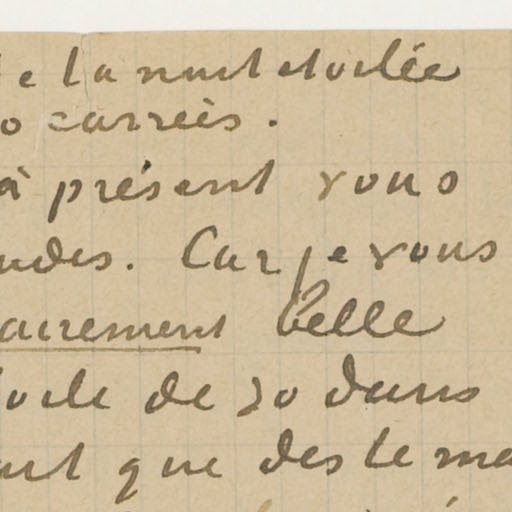 e la nuit etoilée
0 carrées.
à présent vous
ndes. Car je vous
airement belle
toile de 30 dans
ant que des le ma